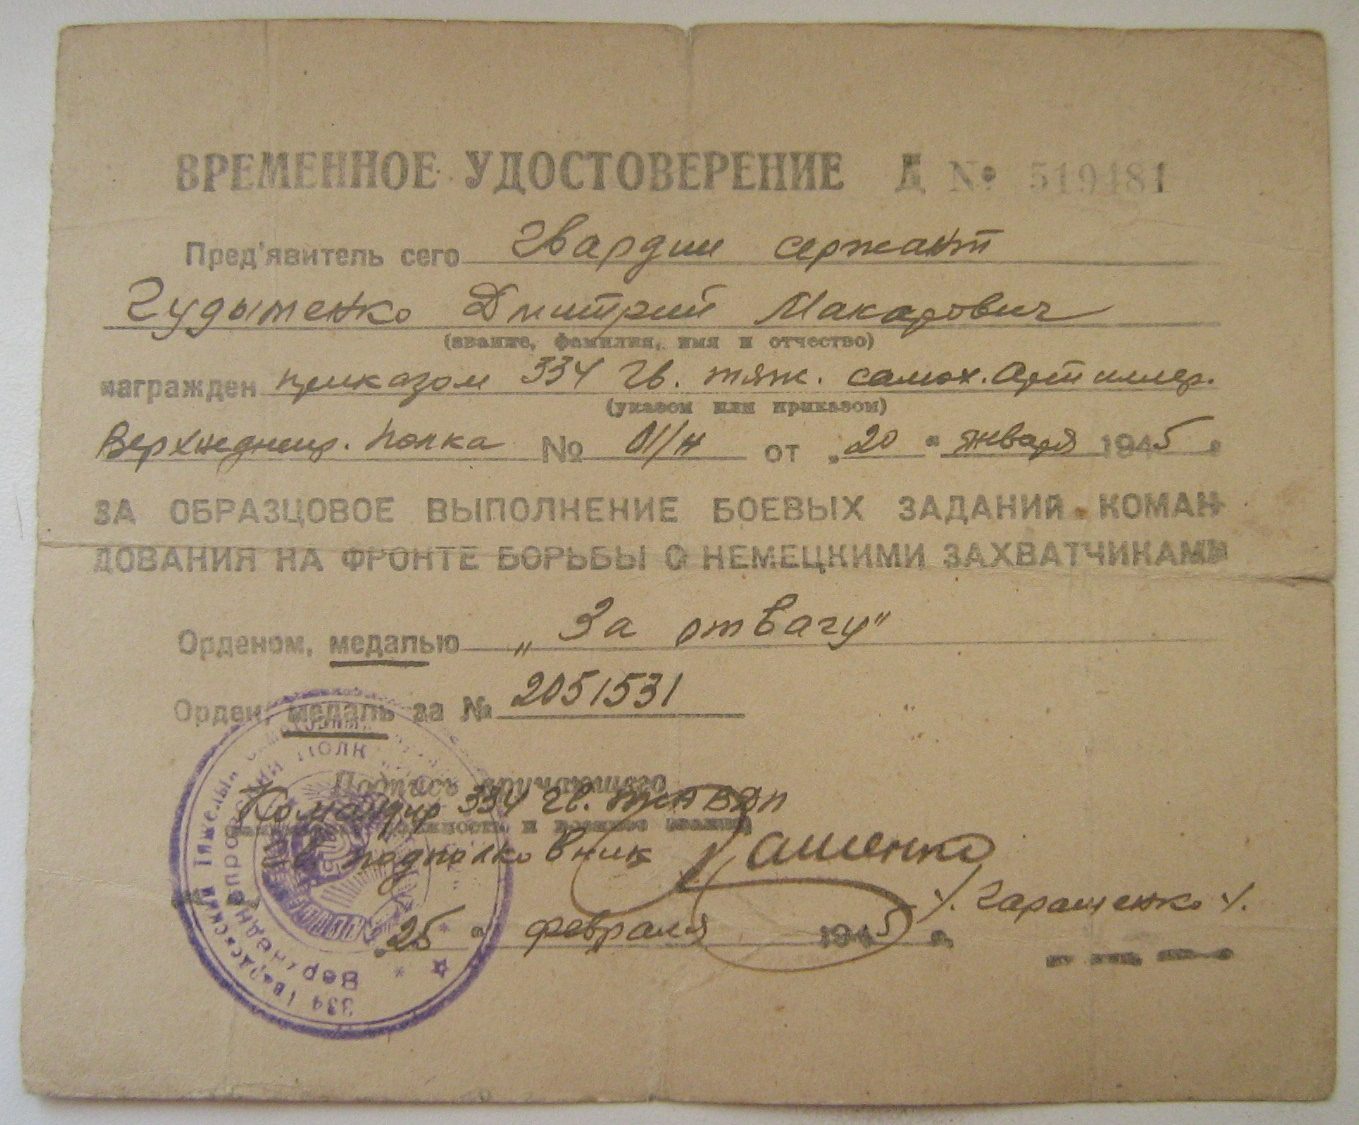 ВРЕМЕННОЕ УДОСТОВЕРЕНИЕ Д № 519481
Пред'явитель сего Гвардии сержант
Гудыменко Дмитрий Макарович
(звание, фамилия, имя и отчество)
награжден приказом 334 Гв. тяж. самох. Артиллер.
(указом или приказом)
Верхнеднепр. полка № 01/н от „20" января 1945 г.
ЗА ОБРАЗЦОВОЕ ВЫПОЛНЕНИЕ БОЕВЫХ ЗАДАНИЙ КОМАН-
ДОВАНИЯ НА ФРОНТЕ БОРЬБЫ С НЕМЕЦКИМИ ЗАХВАТЧИКАМИ
Орденом, медалью „За отвагу"
Орден, медаль за № 2051531
Подпись вручающего
Командир 334 Гв.
должность и военное звание
Гв подполковник Гаращенко
/. Гаращенко /.
„25" февраля 1945 г.
334 Гвардейский Тяжелый
Верхнеднепровский Полк